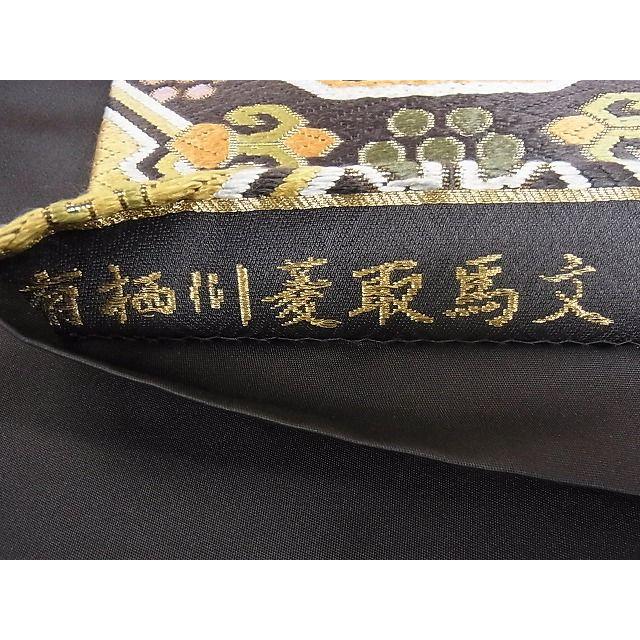 有栖川菱取馬文